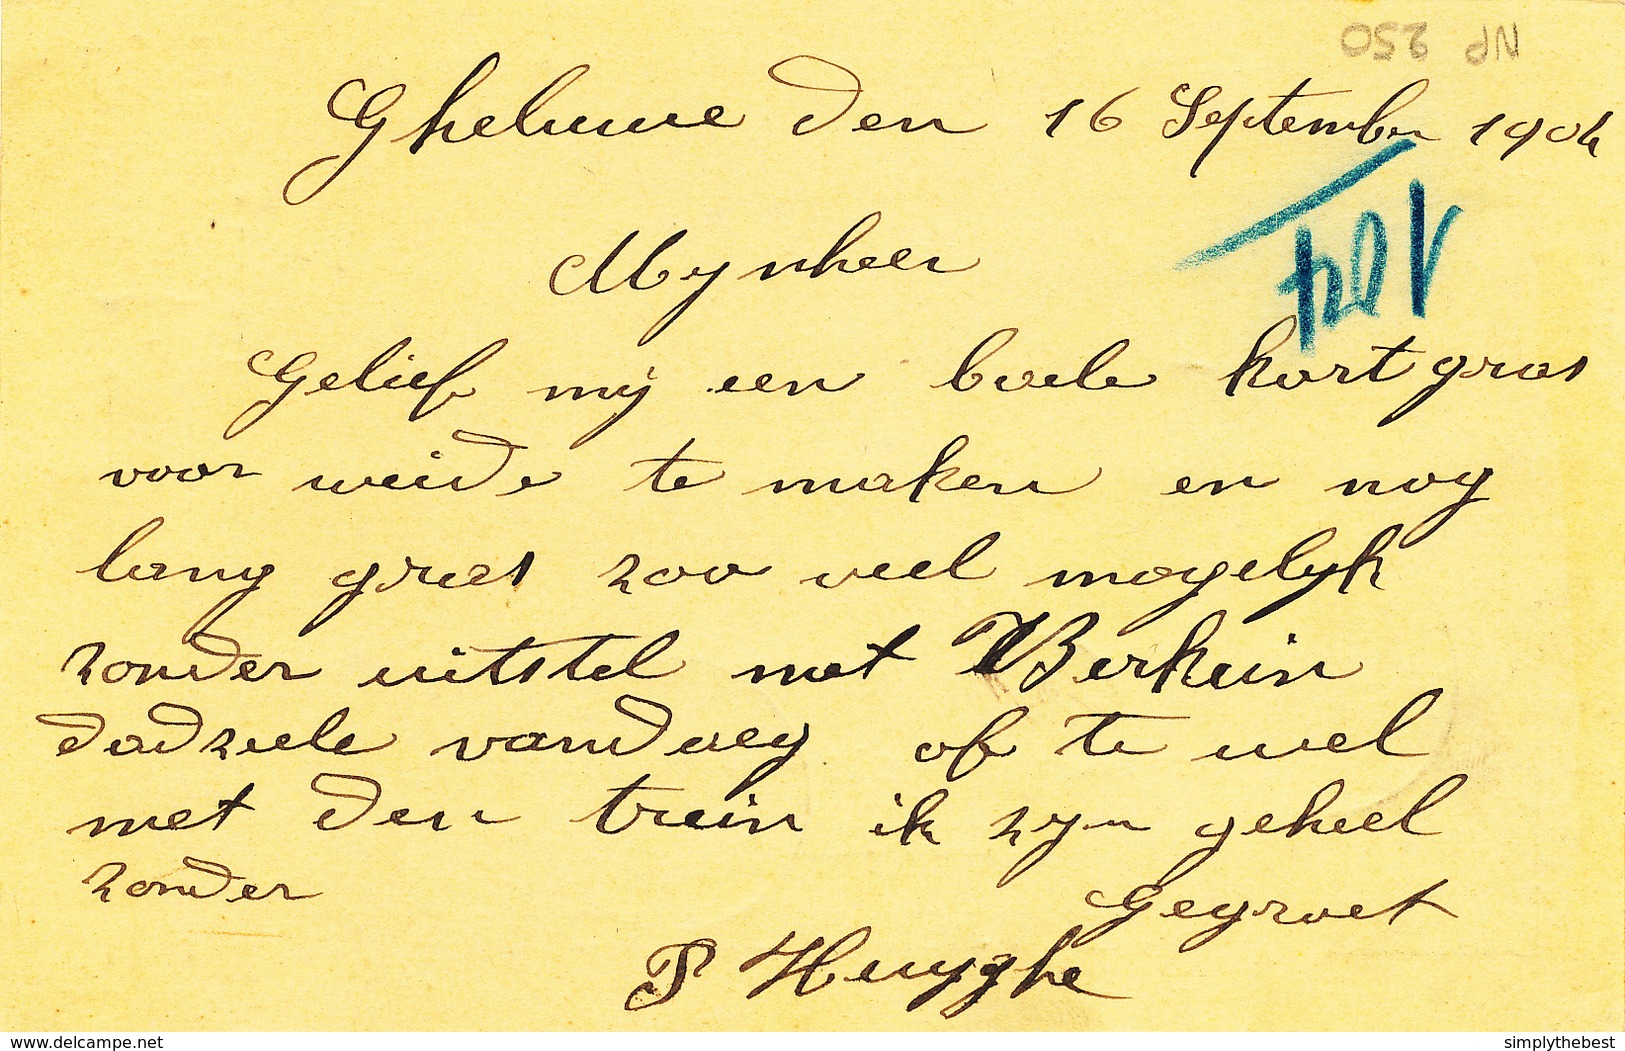 NP 250
Gheluwe den 16 September 1904
Mynheer
Gelief mij een boele kort gras
voor weide te maken en nog
lang gras zoo veel mogelyk
zonder uitstel met Berkein
dadzeele vandaeg of te wel
met den trein ik zyn geheel
zonder
Gegroet
P Huyghe
delcampe.net
simplythebest